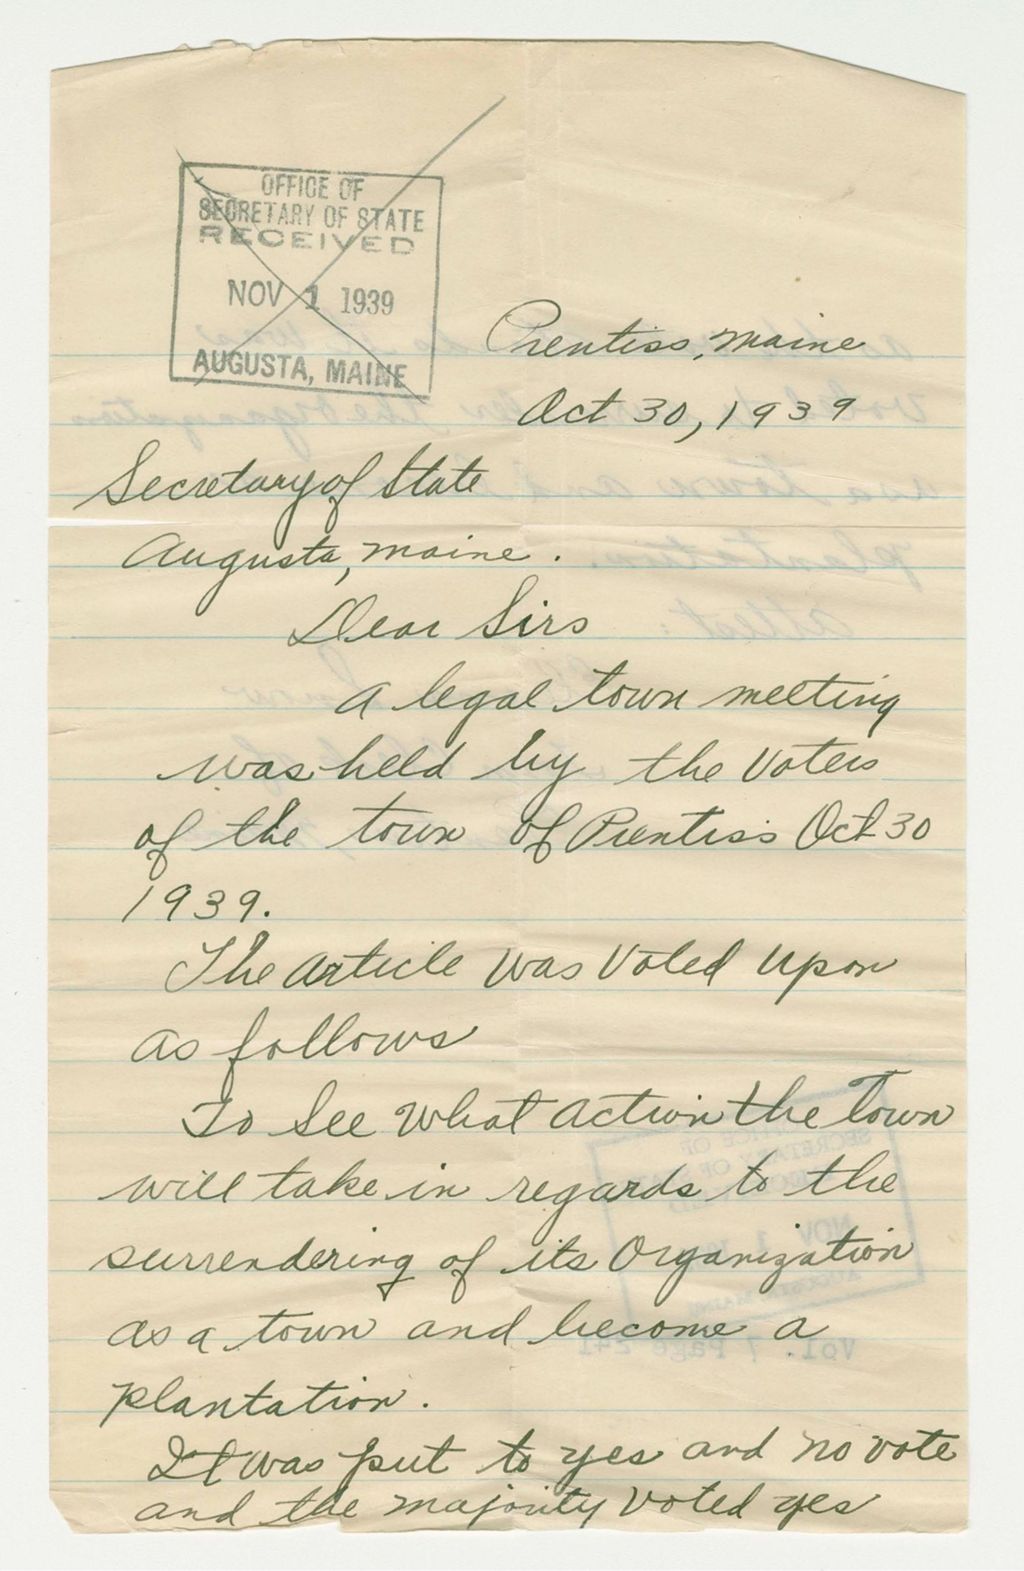 OFFICE OF
SECRETARY OF STATE
RECEIVED
NOV 1 1939
AUGUSTA, MAINE
Prentiss, Maine
Oct 30, 1939
Secretary of State
Augusta, Maine.
Dear Sirs
A legal town meeting
was held by the Voters
of the town of Prentiss Oct 30
1939.
The Article was Voted Upon
as follows
To See What Action the Town
will take in regards to the
surrendering of its Organization
as a town and become a
plantation.
It was put to yes and no vote
and the majority Voted yes